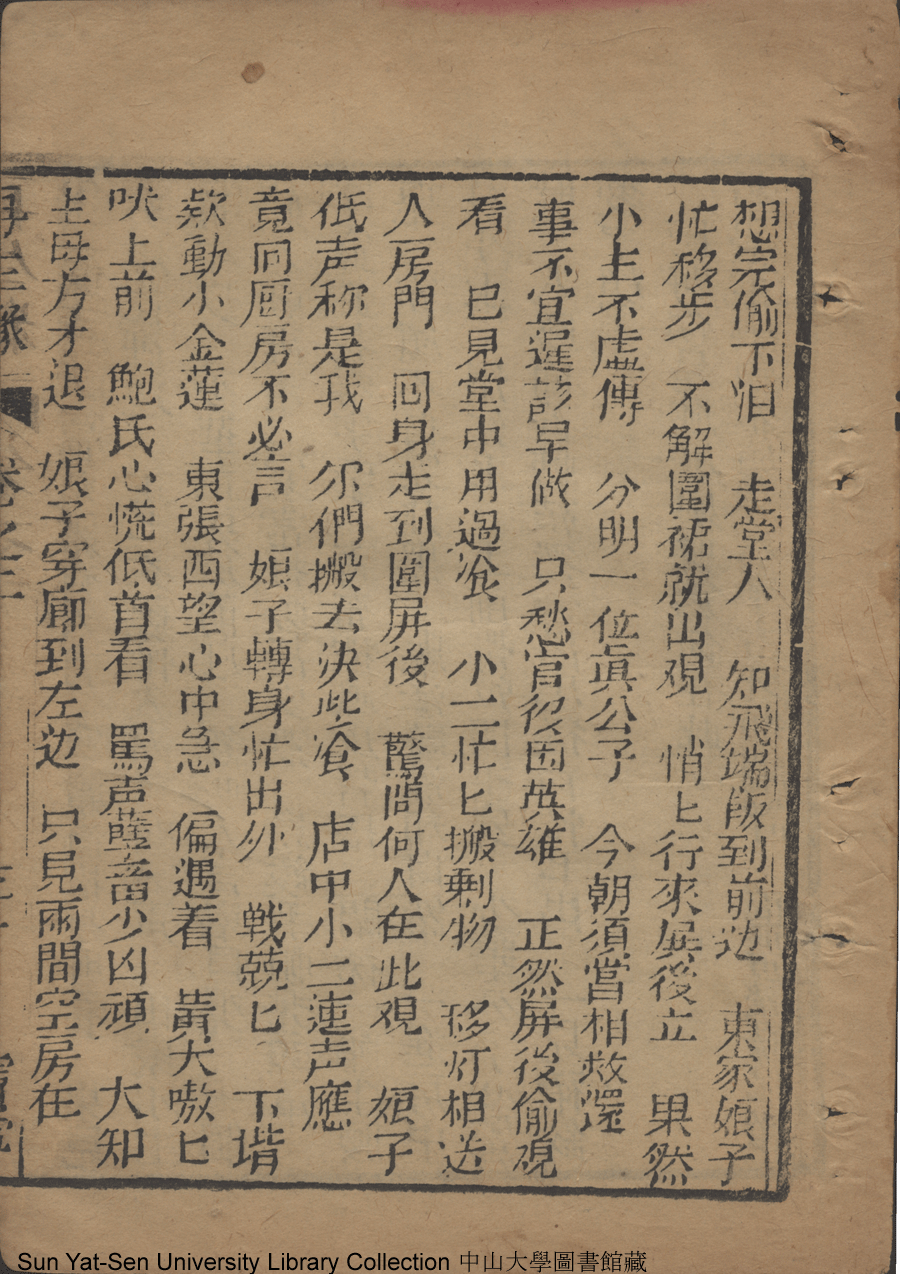 想完偷下泪 走堂人 知飛端飯到前边 東家娘子
忙移步 不解圍裙就出观 悄匕行來屏後立 果然
小主不虚傳 分明一位真公子 今朝須當相救還
事不宜遲該早做 只愁官役困英雄 正然屏後偷观
看 已見堂中用過飡 小二忙匕搬剩物 移灯相送
人房門 回身走到圍屏後 驚問何人在此观 娘子
低声称是我 尔們搬去決些飡 店中小二連声應
竟回厨房不必言 娘子轉身忙出外 戰兢匕 下堦
欵動小金蓮 東張西望心中急 偏遇着 黄犬嗷匕
吠上前 鮑氏心慌低首看 罵声孽畜少凶頑 犬知
主母方才退 娘子穿廊到左边 只見兩間空房在
再生緣 卷之二
Sun Yat-Sen University Library Collection 中山大學圖書館藏